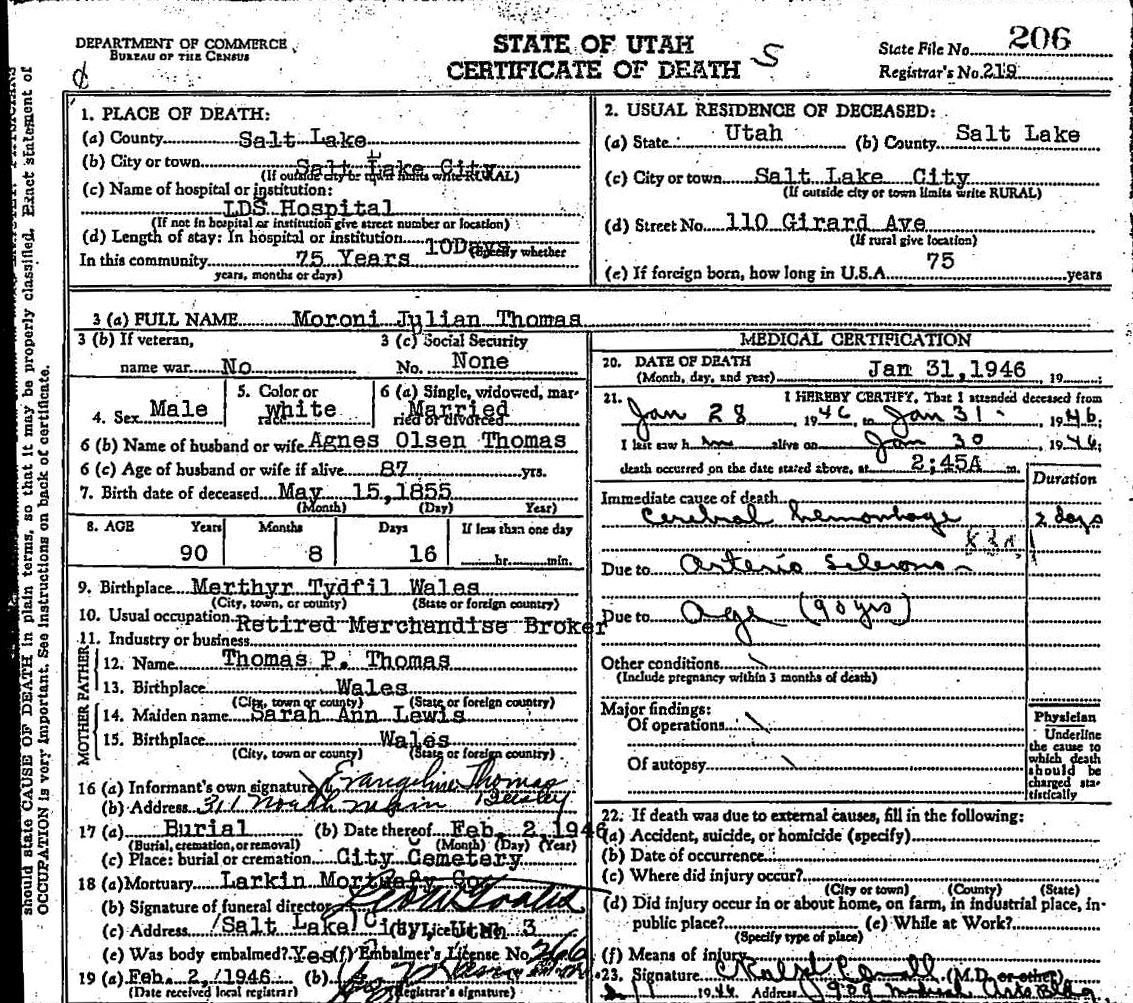 DEPARTMENT OF COMMERCE
BUREAU OF THE CENSUS
STATE OF UTAH
CERTIFICATE OF DEATH
S
State File No. 206
Registrar's No. 219
should state CAUSE OF DEATH in plain terms, so that it may be properly classified. Exact statement of
OCCUPATION is very important. See instructions on back of certificate.
1. PLACE OF DEATH:
(a) County Salt Lake
(b) City or town Salt Lake City
(If outside city or town limits write RURAL)
(c) Name of hospital or institution:
LDS Hospital
(If not in hospital or institution give street number or location)
(d) Length of stay: In hospital or institution 10Days (Specify whether
In this community 75 Years
years, months or days)
2. USUAL RESIDENCE OF DECEASED:
(a) State Utah (b) County Salt Lake
(c) City or town Salt Lake City
(If outside city or town limits write RURAL)
(d) Street No. 110 Girard Ave
(If rural give location)
(e) If foreign born, how long in U.S.A. 75 years
3 (a) FULL NAME Moroni Julian Thomas
3 (b) If veteran,
name war No
3 (c) Social Security
No. None
4. Sex Male
5. Color or
race White
6 (a) Single, widowed, mar-
ried or divorced Married
6 (b) Name of husband or wife Agnes Olsen Thomas
6 (c) Age of husband or wife if alive 87 yrs.
7. Birth date of deceased May 15,1855
(Month) (Day) Year)
8. AGE Years Months Days If less than one day
90 8 16 hr. min.
9. Birthplace Merthyr Tydfil Wales
(City, town, or county) (State or foreign country)
10. Usual occupation Retired Merchandise Broker
11. Industry or business
FATHER
12. Name Thomas P. Thomas
13. Birthplace Wales
(City, town or county) (State or foreign country)
MOTHER
14. Maiden name Sarah Ann Lewis
15. Birthplace Wales
(City, town or county) (State or foreign country)
16 (a) Informant's own signature Evangeline Thomas Beesley
(b) Address 311 North Main
17 (a) Burial (b) Date thereof Feb. 2, 1946
(Burial, cremation, or removal) (Month) (Day) (Year)
(c) Place: burial or cremation City Cemetery
18 (a) Mortuary Larkin Mortuary Co.
(b) Signature of funeral director
(c) Address Salt Lake City, Utah License No. 3
(e) Was body embalmed? Yes (f) Embalmer's License No. 266
19 (a) Feb. 2, 1946 (b)
(Date received local registrar) (Registrar's signature)
MEDICAL CERTIFICATION
20. DATE OF DEATH
(Month, day, and year) Jan 31,1946 , 19 ;
21. I HEREBY CERTIFY, That I attended deceased from
Jan 28 , 1946, to Jan 31 , 1946.
I last saw him alive on Jan 30 1946;
death occurred on the date stated above, at 2:45A m.
Duration
Immediate cause of death
Cerebral hemorrhage 2 days
83a
Due to Arterio Sclerosis
Due to Age (90 yrs)
Other conditions
(Include pregnancy within 3 months of death)
Major findings:
Of operations
Of autopsy
Physician
Underline
the cause to
which death
should be
charged sta-
tistically
22. If death was due to external causes, fill in the following:
(a) Accident, suicide, or homicide (specify)
(b) Date of occurrence
(c) Where did injury occur?
(City or town) (County) (State)
(d) Did injury occur in or about home, on farm, in industrial place, in-
public place? (e) While at Work?
(Specify type of place)
(f) Means of injury
23. Signature (M.D. or other)
1946 Address 909 Medical Arts Bldg